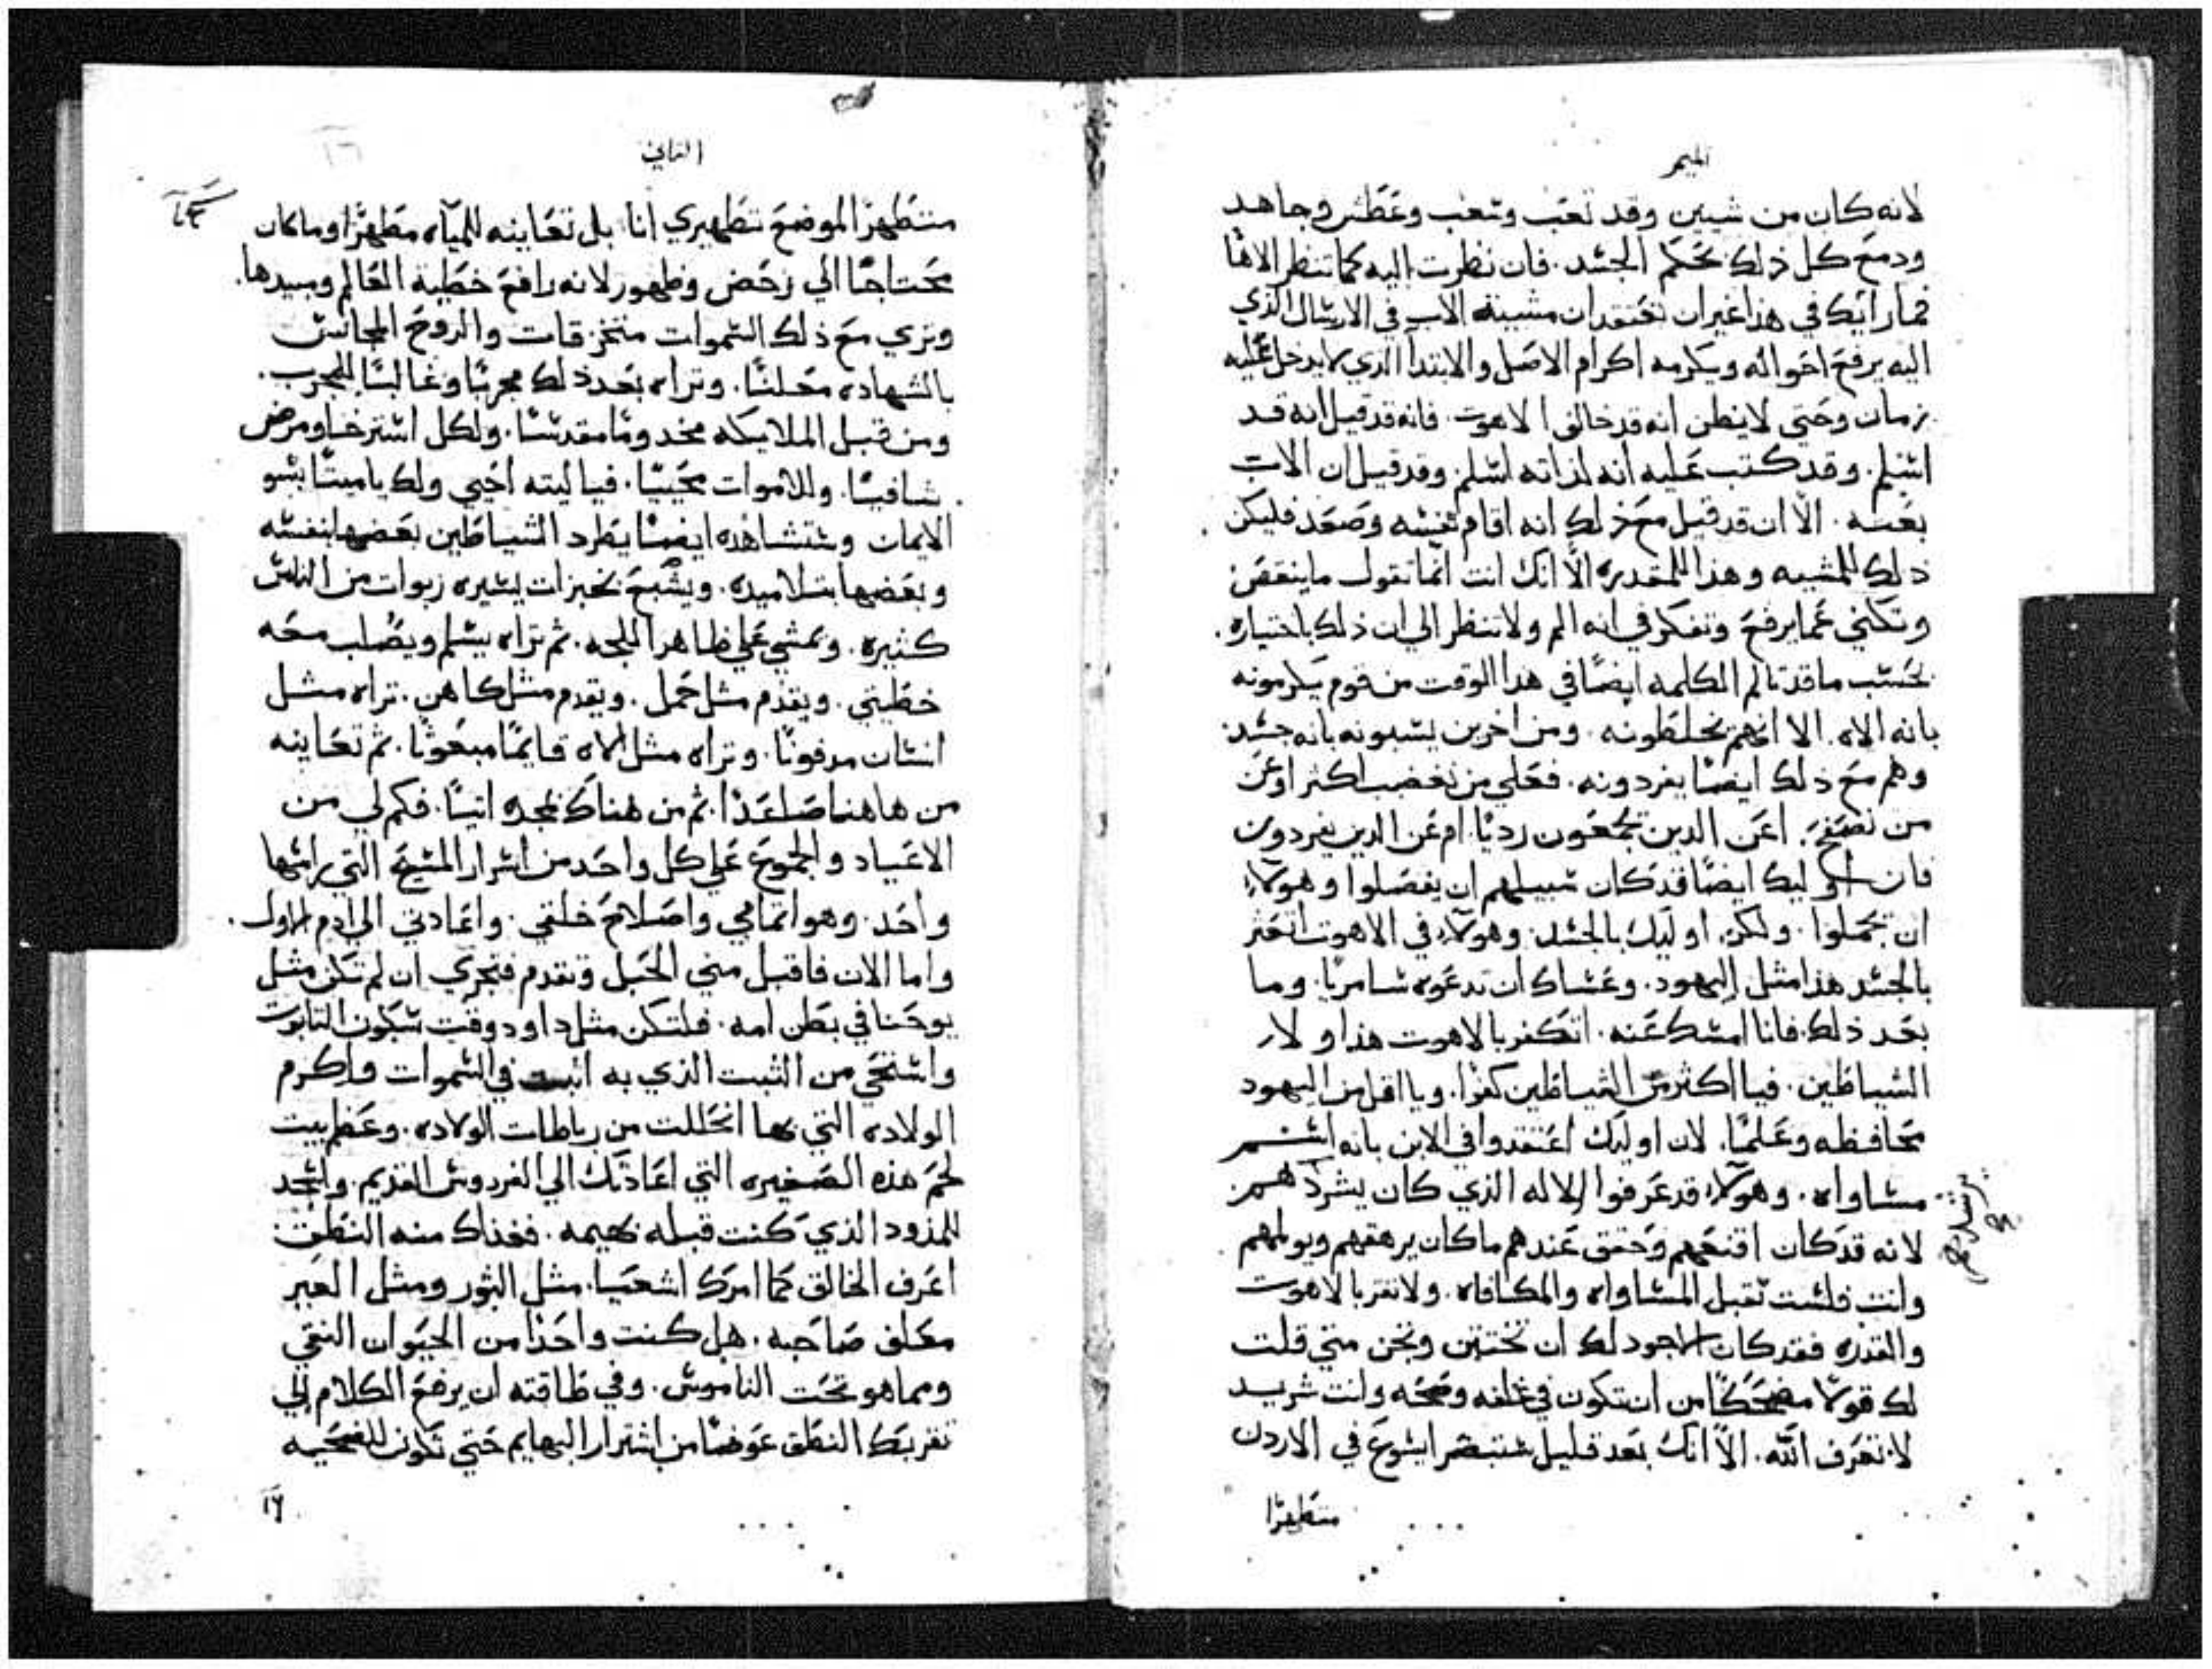 الميمر
لانه كان من شيين وقد تعب وسغب وعطش وجاهد
ودمع كل ذلك بحكم الجسد. فان نظرت اليه كما تنظر الاها
فما رايك في هذا غير ان تعتقد ان مشيية الاب في الارسال الذي
اليه يرفع احواله ويكرمه اكرام الاصل والابتدا الذي لا يدخل عليه
زمان وحتي لا يظن انه قد خالف الاهوت. فانه قد قيل انه قد
اسلم. وقد كتب عليه انه لذاته اسلم. وقد قيل ان الاب
بعثه. الا ان قد قيل مع ذلك انه اقام نفسه وصعد فليكن
ذلك للمشييه وهذا للمقدره الا انك انت انما تقول ما ينقص
وتكني عما يرفع وتفكر في انه الم ولا تنظر الي ان ذلك باختياره.
بحسب ما قد تالم الكلمه ايضا في هدا الوقت من قوم يكرمونه
بانه الاه. الا انهم يخلطونه. ومن اخرين يسبونه بانه جسد.
وهم مع ذلك ايضا يفردونه. فعلي من نغضب اكثر او عن
من نصفح. اعن الدين يجمعون رديا. ام عن الدين يفردون
فان اوليك ايضا قد كان سبيلهم ان يفصلوا وهولاء
ان يجملوا. ولكن اوليك بالجسد. وهولاء في الاهوت اتعثر
بالجسد هذا مثل اليهود. وعساك ان تدعوه سامريا. وما
بعد ذلك. فانا امسك عنه. اتكفر بالاهوت هذا ولار
الشياطين. فيا اكثر من الشياطين كفرا. ويا اقل من اليهود
محافظه وعلما. لان اوليك اعتقدوا في الابن بانه اسم
مساواه. وهولاء قد عرفوا الاله الذي كان يشردهم
لانه قد كان اقنعهم وحقق عندهم ما كان يرهقهم ويولمهم
وانت فلست تقبل المساواه والمكافاه. ولا تقر بالاهوت
والقدره فقد كان الاجود لك ان تختتن ونحن متي قلت
لك قولا مضحكا من ان تكون في غلفه وصحه وانت شريد
لا تعرف الله. الا انك بعد قليل ستبصر ايسوع في الاردن
متطهرا
الثاني
متطهرا لموضع تطهيري انا بل تعاينه للمياه مطهرا وما كان
محتاجا الي رحض وطهور لانه رافع خطية العالم ومبيدها.
وتري مع ذلك السموات متخزقات والروح المجانس
بالشهاده معلنا. وتراه بعد ذلك مجربا وغالبا للمجرب.
ومن قبل الملايكه مخدوما مقدسا. ولكل استرخا ومرض
شافيا. وللاموات محييا. فيا ليته احيي ولك يا ميتا بسو
الايمان وستشاهده ايضا يطرد الشياطين بعضها بنفسه
وبعضها بتلاميده. ويشبع بخبزات يسيره ربوات من الناس
كثيره. ويمشي علي ظاهر اللجه. ثم تراه يسلم ويصلب معه
خطيتي. ويقدم مثل حمل. ويقدم مثل كاهن. تراه مثل
انسان مدفونا. وتراه مثل الاه قايما مبعوثا. ثم تعاينه
من هاهنا صاعدا. ثم من هناك نجده اتيا. فكم لي من
الاعياد والجموع علي كل واحد من اسرار المسيح التي راسها
واحد. وهو اتمامي واصلاح خلقي. واعادتي الي ادم الاول.
واما الان فاقبل مني الحبل وتقدم فتجري ان لم تكن مثل
يوحنا في بطن امه. فلتكن مثل داود وقت سكون التابوت
واستحي من الثبت الذي به اثبت في السموات واكرم
الولاده التي بها انحللت من رباطات الولاده. وعظم بيت
لحم هذه الصغيره التي اعادتك الي الفردوس القديم. واسجد
للمذود الذي كنت قبله بهيمه. فغذاك منه النطق
اعرف الخالق كما امرك اشعيا. مثل الثور ومثل العير
معلف صاحبه. هل كنت واحدا من الحيوان النقي
ومما هو تحت الناموس. وفي طاقته ان يرفع الكلام الي
تقريبك النطق عوضا من اشرار البهايم حتي تكون للضحيه
١٦